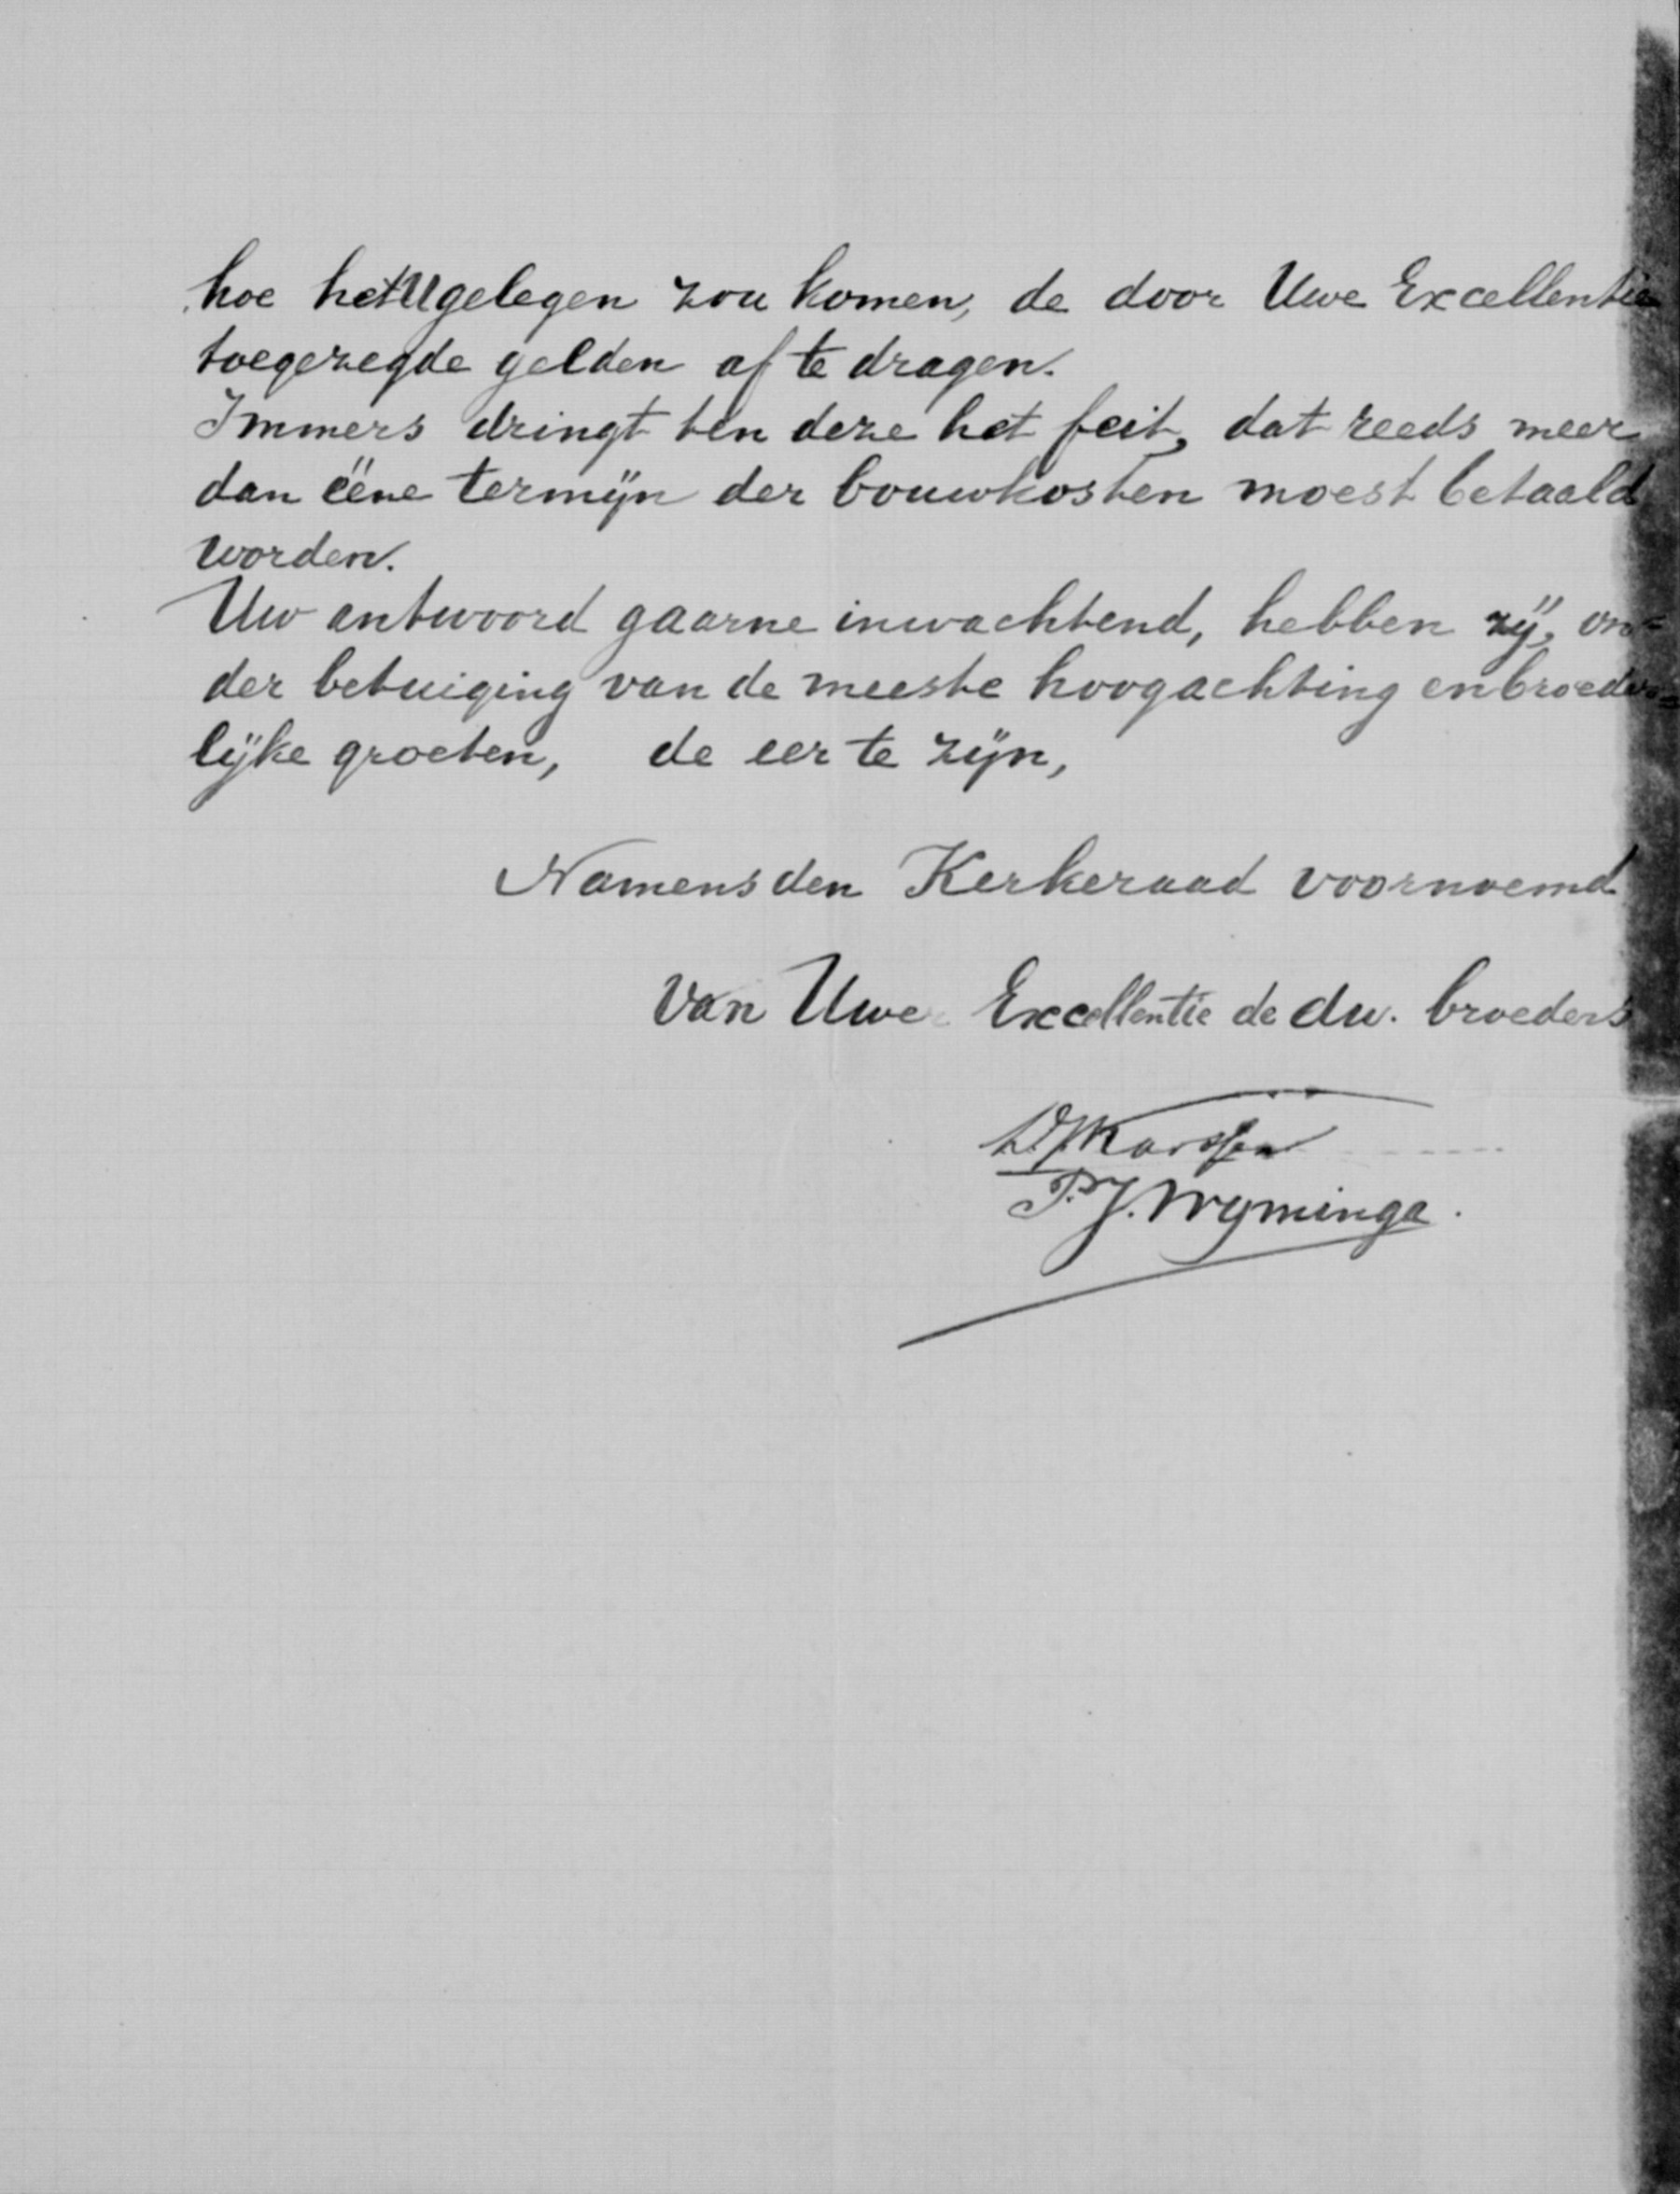 hoe het U gelegen zou komen, de door Uwe Excellentie
toegezegde gelden af te dragen.
Immers dringt ten deze het feit, dat reeds meer
dan ééne termijn der bouwkosten moest betaald
worden.
Uw antwoord gaarne inwachtend, hebben zij, on=
der betuiging van de meeste hoogachting en broeder=
lijke groeten, de eer te zijn,
Namens den Kerkeraad voornoemd
Van Uwe Excellentie de dw. broeders
P. J. Wyminga.